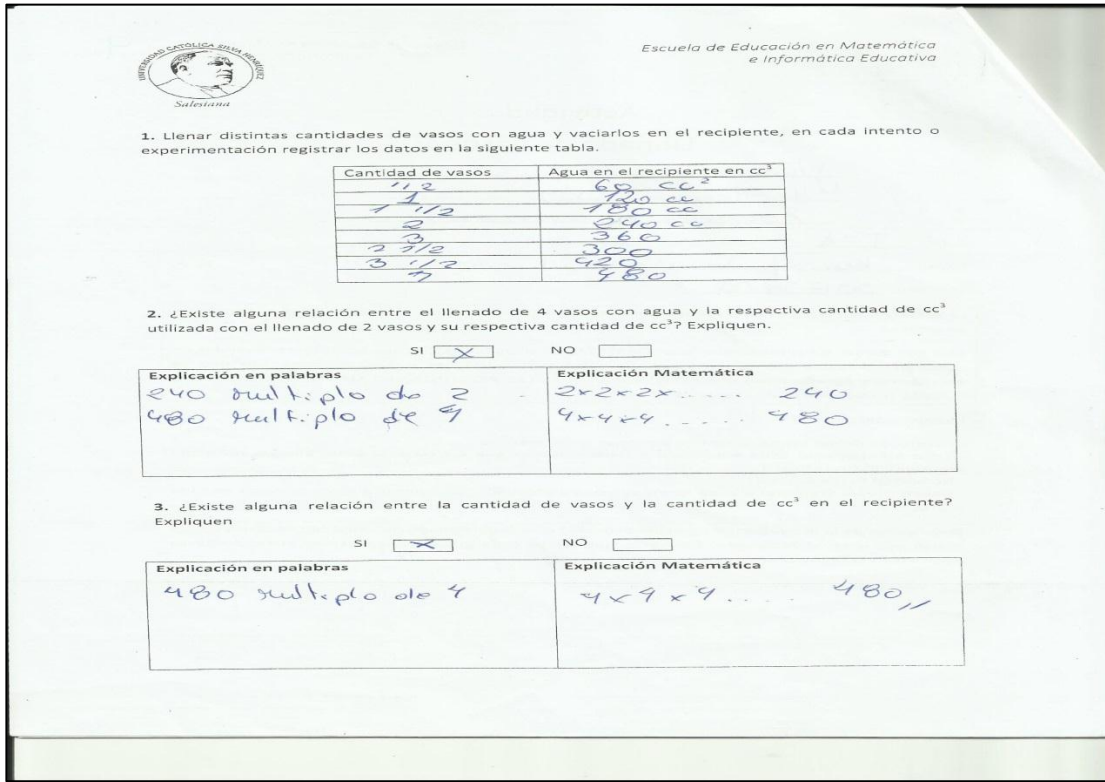 UNIVERSIDAD CATÓLICA SILVA HENRÍQUEZ
Salesiana
Escuela de Educación en Matemática
e Informática Educativa
1. Llenar distintas cantidades de vasos con agua y vaciarlos en el recipiente, en cada intento o
experimentación registrar los datos en la siguiente tabla.
Cantidad de vasos Agua en el recipiente en cc³
1/2 60 cc²
1 120 cc
1 1/2 180 cc
2 240 cc
3 360
2 1/2 300
3 1/2 420
4 480
2. ¿Existe alguna relación entre el llenado de 4 vasos con agua y la respectiva cantidad de cc³
utilizada con el llenado de 2 vasos y su respectiva cantidad de cc³? Expliquen.
SI X NO
Explicación en palabras Explicación Matemática
240 multiplo de 2 2x2x2x..... 240
480 multiplo de 4 4x4x4..... 480
3. ¿Existe alguna relación entre la cantidad de vasos y la cantidad de cc³ en el recipiente?
Expliquen
SI X NO
Explicación en palabras Explicación Matemática
480 multiplo de 4 4x4x4.... 480,,